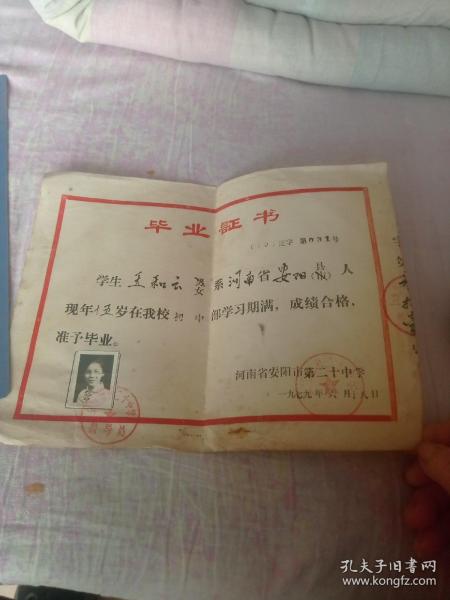 毕业证书
证字 第031号
学生 和云 男 女 系河南省安阳 县 市 人
现年 岁在我校 初中 部学习期满，成绩合格，
准予毕业。
河南省安阳市第二十中学
一九七九年六月 八日
孔夫子旧书网
www.kongfz.com